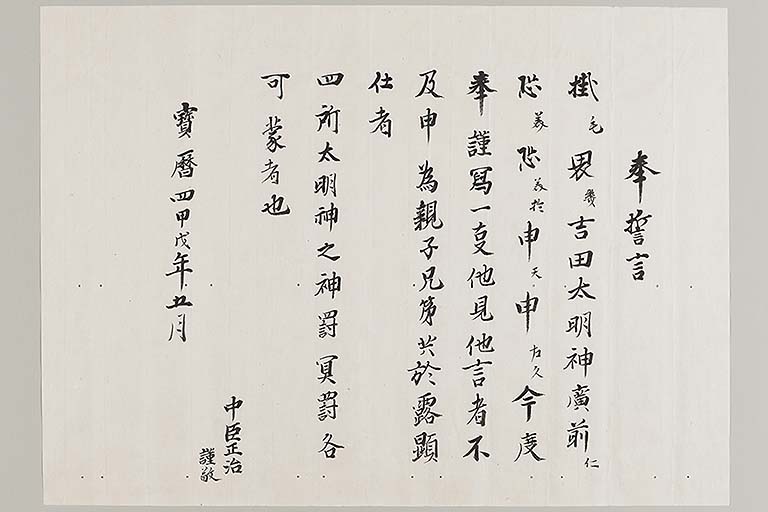 奉誓言
掛毛畏幾吉田太明神廣前仁
恐美恐美於申天申左久今度
奉謹寫一叓他見他言者不
及申為親子兄弟共於露顕
仕者
四所太明神之神罸冥罸各
可蒙者也
寳曆四甲戌年五月
中臣正治
謹敬